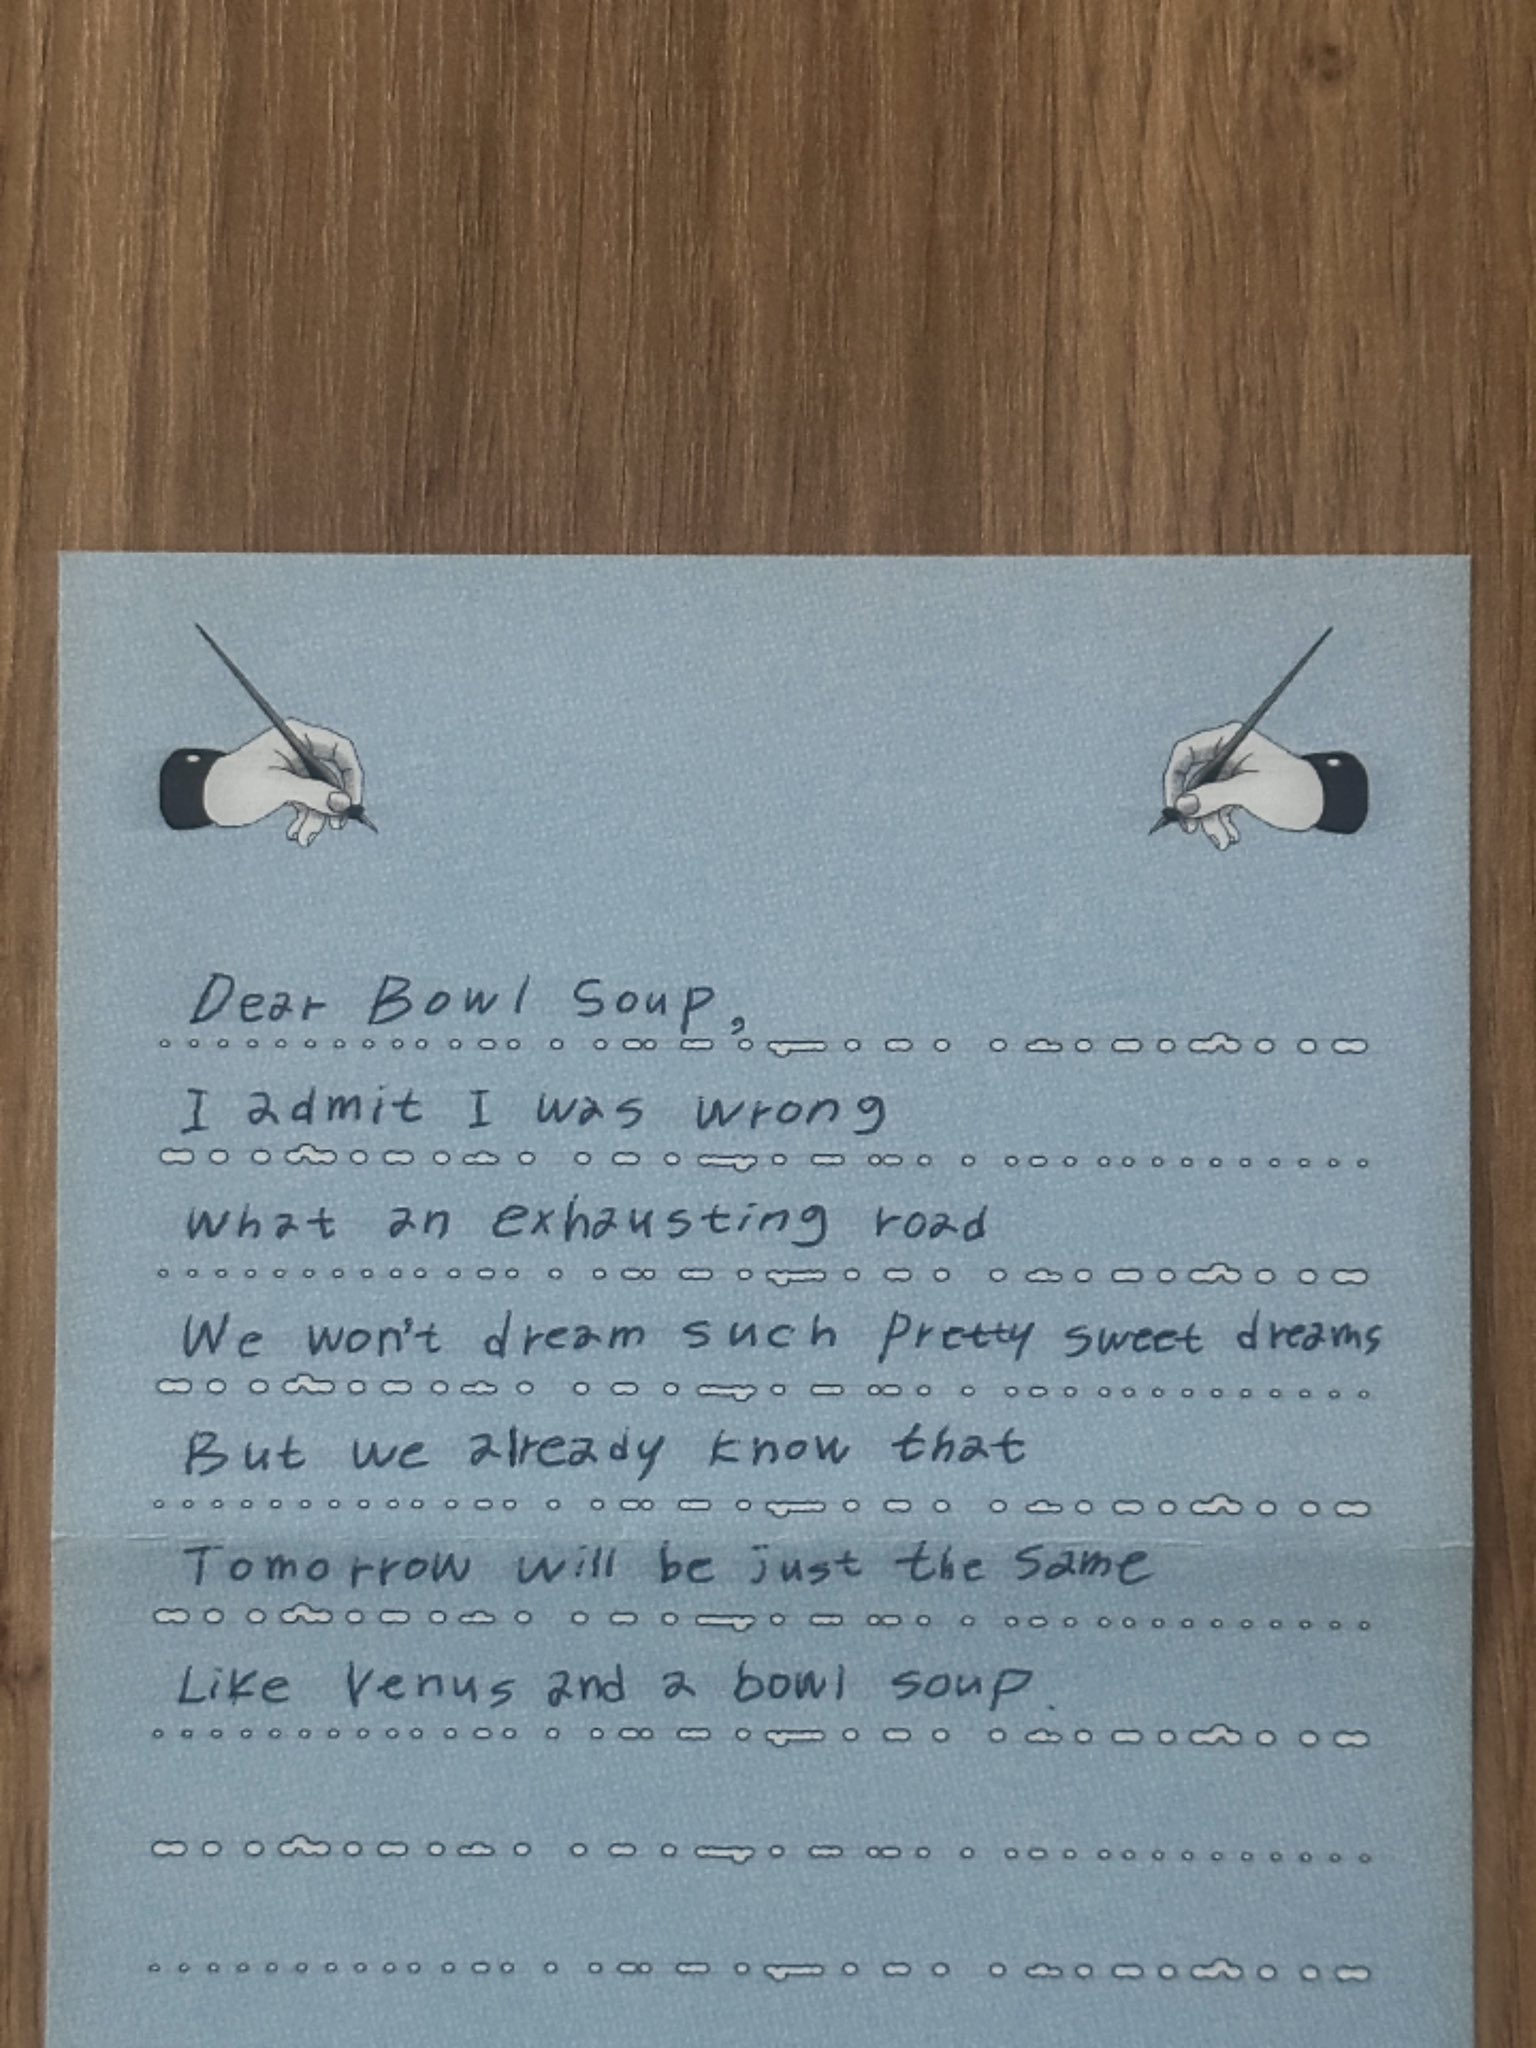 Dear Bowl Soup,
I admit I was wrong
What an exhausting road
We won't dream such pretty sweet dreams
But we already know that
Tomorrow will be just the same
Like Venus and a bowl soup.